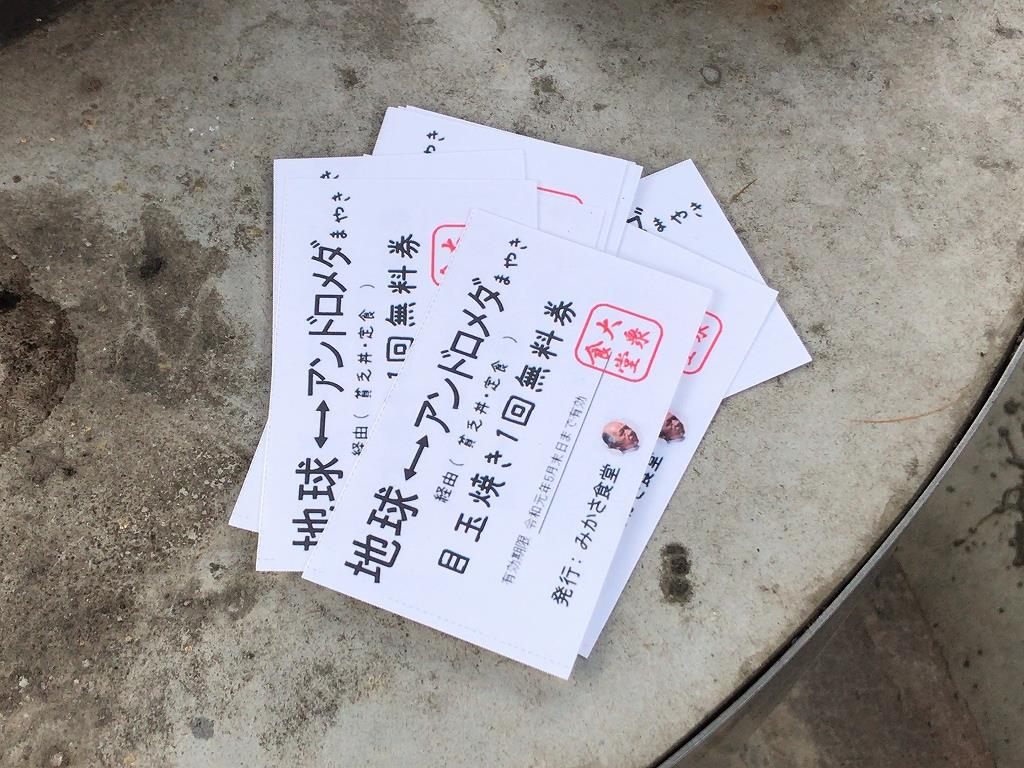 地球⟷アンドロメダまやき
経由（貧乏丼・定食）
目玉焼き1回無料券
有効期限 令和元年5月末日まで有効
発行：みかさ食堂
大衆
食堂
地球⟷アンドロメダまやき
経由（貧乏丼・定食）
1回無料券
まやき
まやき